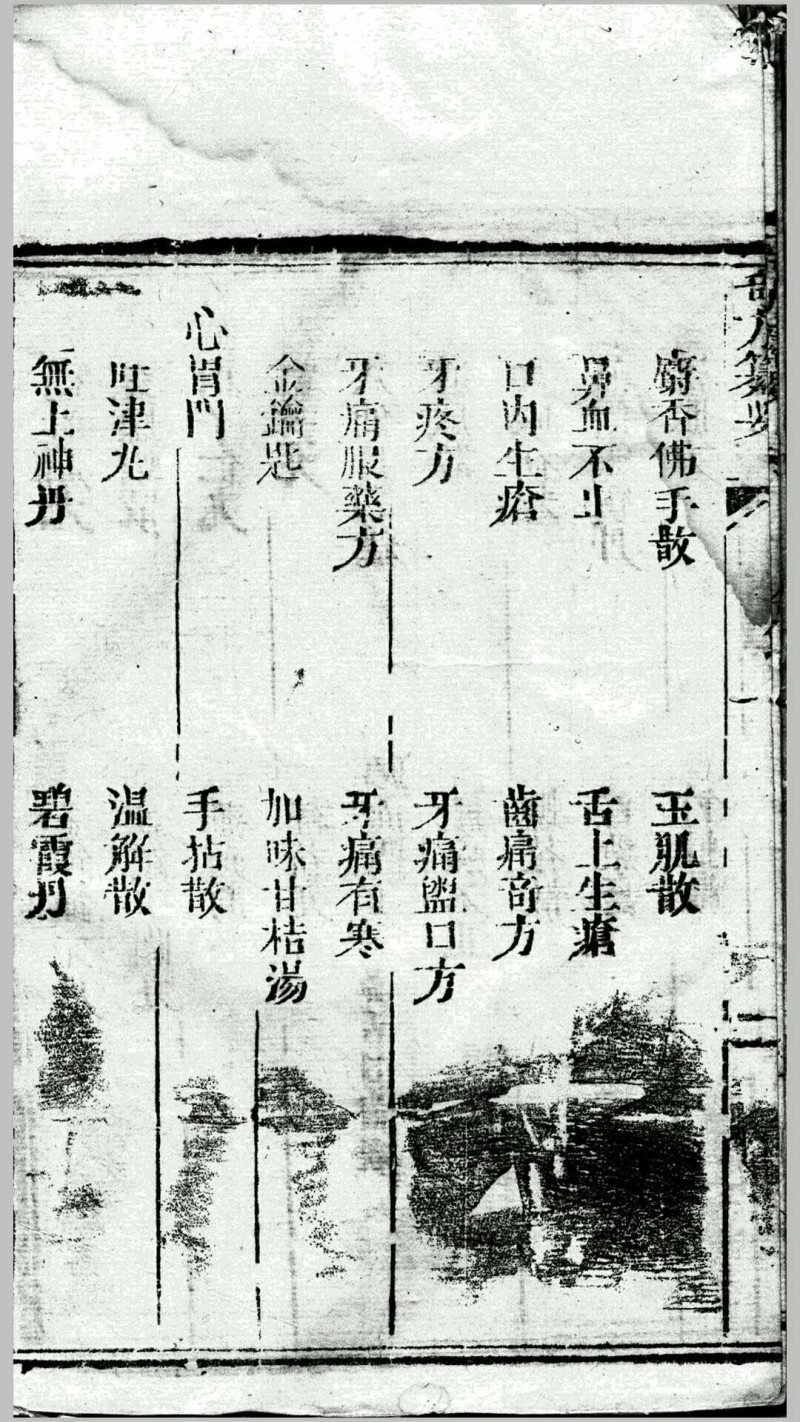 奇方纂要
麝香佛手散
玉肌散
鼻血不止
舌上生瘡
口內生瘡
齒痛奇方
牙疼方
牙痛盥口方
牙痛服藥方
牙痛有寒
金鑰匙
加味甘桔湯
心胃門
手拈散
旺津丸
溫解散
無上神丹
碧霞丹